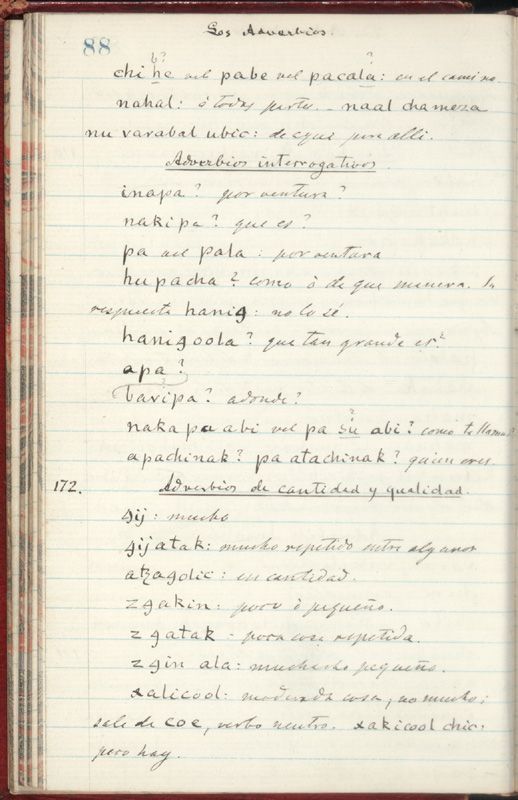 88
Los Adverbios.
b? ?
chi he vel pabe vel pacala: en el camino.
nahal: ó todas partes. naal chameza
nu varabal ubic: de aqui para alli.
Adverbios interrogativos.
inapa? por ventura?
nakipa? que es?
pa vel pala: por ventura
hupacha? como ò de que manera. In
respuesta hanig: no lo sé.
hanigoola? que tan grande es?
apa?
bavipa? adonde?
?
naka pa abi vel pa su abi? como te llamas?
apachinak? pa atachinak? quien eres.
172. Adverbios de cantidad y qualidad.
gij: mucho
gijatak: mucho repetido entre algunos
atzagolic: en cantidad.
zgakin: poco ò pequeño.
zgatak - poca cosa repetida.
zgin ala: muchacho pequeño.
xalicool: moderada cosa, no mucho;
sale de coe, verbo neutro. xakicool chic:
pero hay.